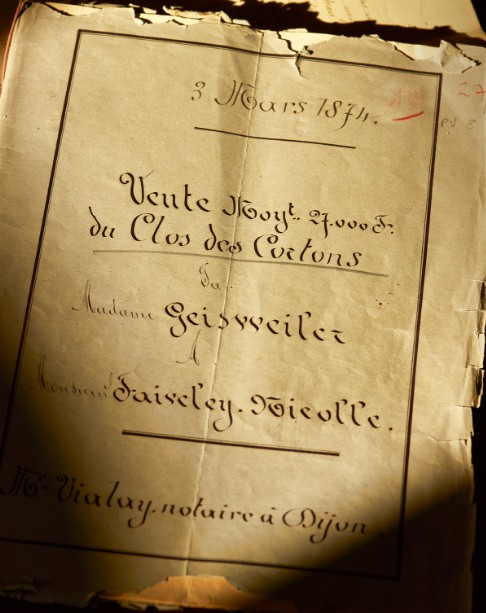 3 Mars 1874.
27
Vente Moyt. 27.000 F.
du Clos des Cortons
Par
Madame Geisweiler
A
Monsieur Faiveley-Nicolle.
Me Vialay, notaire à Dijon.